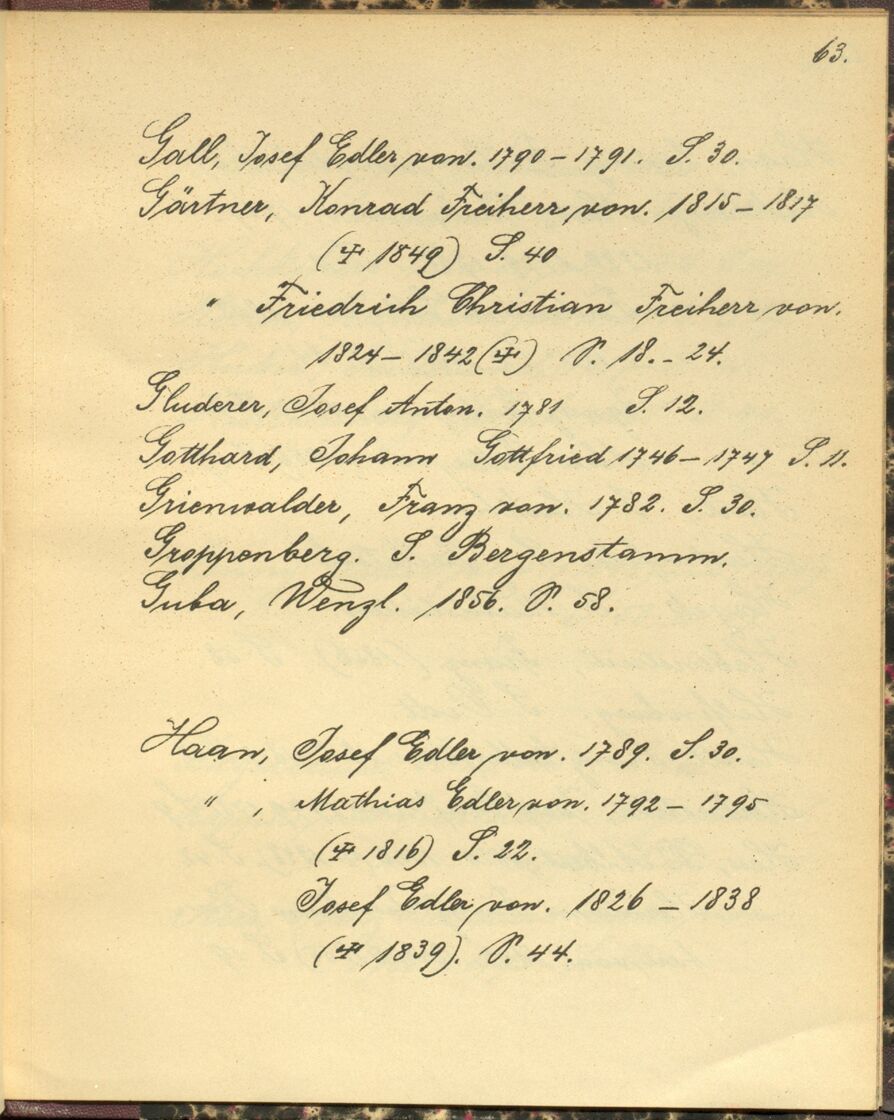 63.
Gall, Josef Edler von. 1790 – 1791. S. 30.
Gärtner, Konrad Freiherr von. 1815 – 1817
(✝ 1849) S. 40
" Friedrich Christian Freiherr von.
1824 – 1842 (✝) S. 18. – 24.
Gluderer, Josef Anton. 1781 S. 12.
Gotthard, Johann Gottfried 1746 – 1747 S. 11.
Grienwalder, Franz von. 1782. S. 30.
Groppenberg. S. Bergenstamm.
Guba, Wenzl. 1856. S. 58.
Haan, Josef Edler von. 1789. S. 30.
" , Mathias Edler von. 1792 – 1795
(✝ 1816) S. 22.
Josef Edler von. 1826 – 1838
(✝ 1839). S. 44.